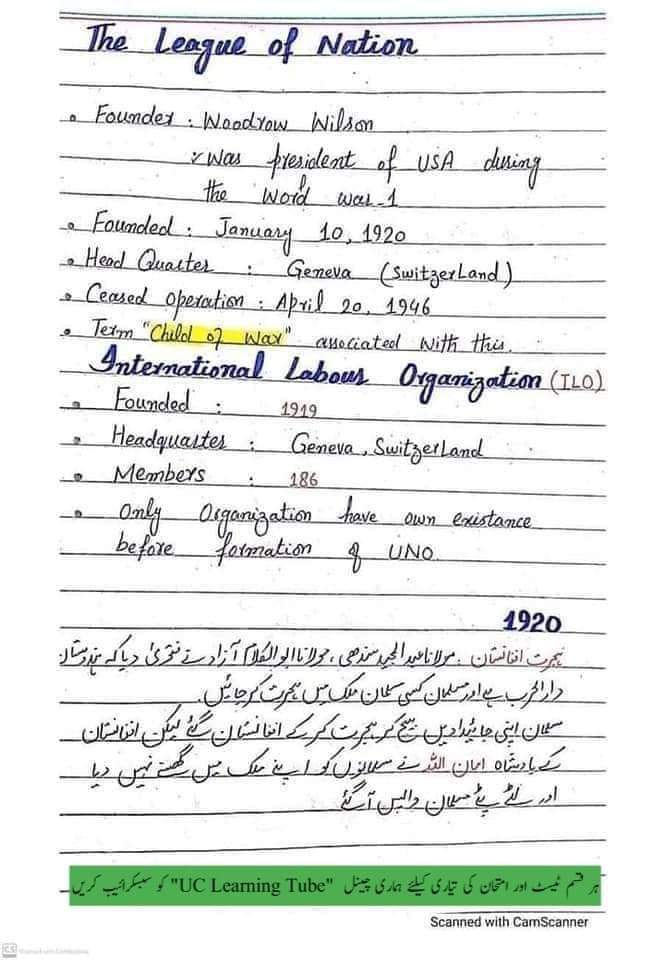 The League of Nation
• Founder : Woodrow Wilson
✓ Was president of USA during
the Word war-1
• Founded : January 10, 1920
• Head Quarter : Geneva (SwitzerLand)
• Ceased operation : April 20, 1946
• Term "Child of War" associated with this.
International Labour Organization (ILO)
• Founded : 1919
• Headquarter : Geneva, SwitzerLand
• Members : 186
• Only Organization have own existance
before formation of UNO
1920
ہجرت افغانستان : مولانا عبدالمجید سندھی ، مولانا ابوالکلام آزاد نے فتویٰ دیا کہ ہندوستان
دارالحرب ہے اور مسلمان کسی مسلمان ملک میں ہجرت کر جائیں۔
مسلمان اپنی جائیدادیں بیچ کر ہجرت کر کے افغانستان گئے لیکن افغانستان
کے بادشاہ امان اللہ نے مسلمانوں کو اپنے ملک میں گھسنے نہیں دیا
اور لٹے پٹے مسلمان واپس آ گئے
ہر قسم ٹیسٹ اور امتحان کی تیاری کیلئے ہماری چینل "UC Learning Tube" کو سبسکرائیب کریں
Scanned with CamScanner
CS Scanned with CamScanner